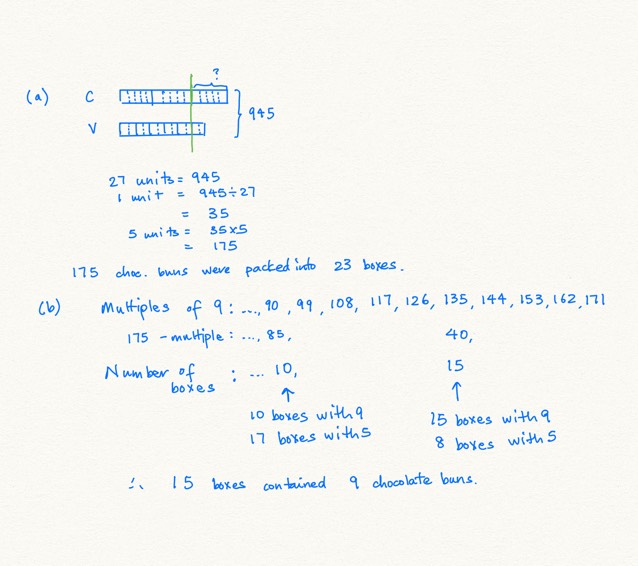 ?
(a) C
945
V
27 units = 945
1 unit = 945÷27
= 35
5 units = 35×5
= 175
175 choc. buns were packed into 23 boxes.
(b) Multiples of 9 : ..., 90, 99, 108, 117, 126, 135, 144, 153, 162, 171
175 - multiple : ..., 85, 40,
Number of boxes : ... 10, 15
10 boxes with 9 15 boxes with 9
17 boxes with 5 8 boxes with 5
∴ 15 boxes contained 9 chocolate buns.